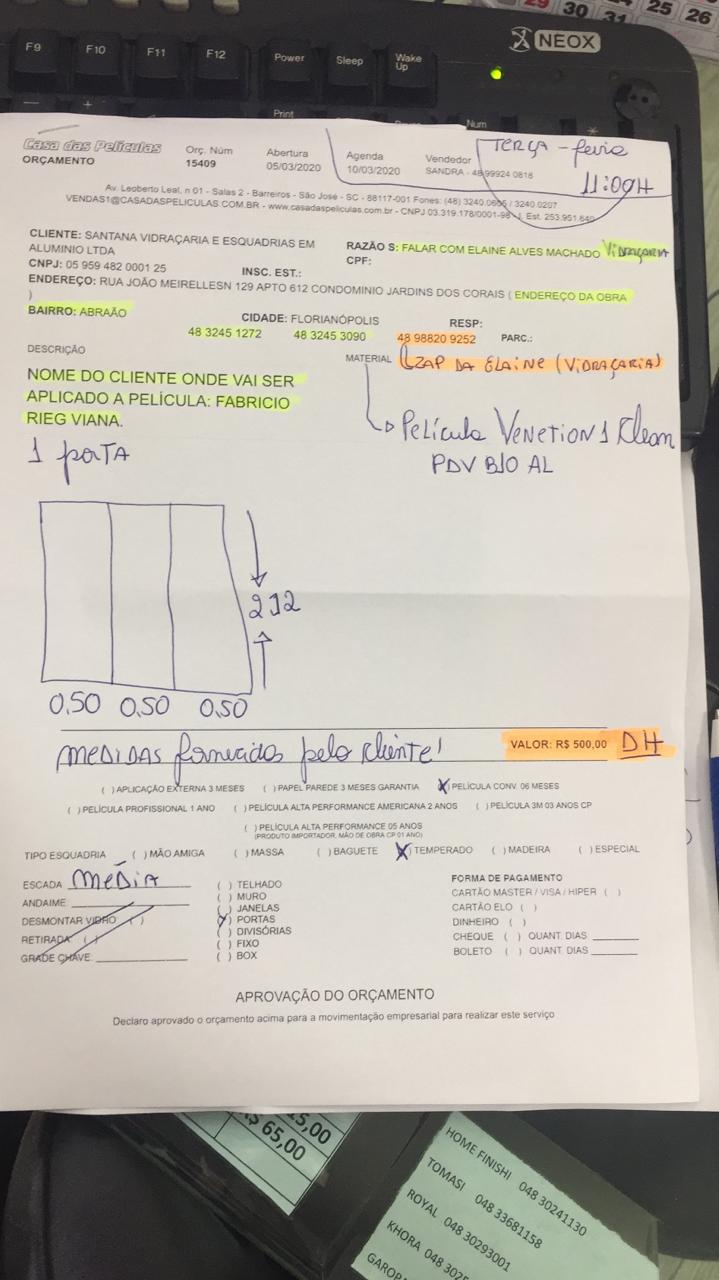 25 26
29 30 31
F9 F10 F11 F12 Power Sleep Wake Up
NEOX
Print
Num
Casa das Películas
ORÇAMENTO
Orç. Núm
15409
Abertura
05/03/2020
Agenda
10/03/2020
Vendedor
SANDRA - 48 99924 0818
TERÇA - feira
11:00H
Av. Leoberto Leal, n 01 - Salas 2 - Barreiros - São José - SC - 88117-001 Fones: (48) 3240.0606 / 3240.0207
VENDAS1@CASADASPELICULAS.COM.BR - www.casadaspeliculas.com.br - CNPJ 03.319.178/0001-98 - I. Est. 253.951.640
CLIENTE: SANTANA VIDRAÇARIA E ESQUADRIAS EM
ALUMINIO LTDA
RAZÃO S: FALAR COM ELAINE ALVES MACHADO VIDRAÇARIA
CNPJ: 05 959 482 0001 25 INSC. EST.: CPF:
ENDEREÇO: RUA JOÃO MEIRELLESN 129 APTO 612 CONDOMINIO JARDINS DOS CORAIS ( ENDEREÇO DA OBRA
)
BAIRRO: ABRAÃO CIDADE: FLORIANÓPOLIS RESP:
48 3245 1272 48 3245 3090 48 98820 9252 PARC.:
DESCRIÇÃO MATERIAL ZAP DA ELAINE (VIDRAÇARIA)
NOME DO CLIENTE ONDE VAI SER
APLICADO A PELÍCULA: FABRICIO
RIEG VIANA.
Película VENETION 1 Clean
PDV BJO AL
1 porTA
212
0,50 0,50 0,50
MEDIDAS fornecidas pelo cliente!
VALOR: R$ 500,00 DH
( ) APLICAÇÃO EXTERNA 3 MESES ( ) PAPEL PAREDE 3 MESES GARANTIA (X) PELÍCULA CONV. 06 MESES
( ) PELÍCULA PROFISSIONAL 1 ANO ( ) PELÍCULA ALTA PERFORMANCE AMERICANA 2 ANOS ( ) PELÍCULA 3M 03 ANOS CP
( ) PELÍCULA ALTA PERFORMANCE 05 ANOS
(PRODUTO IMPORTADOR, MÃO DE OBRA CP 01 ANO)
TIPO ESQUADRIA ( ) MÃO AMIGA ( ) MASSA ( ) BAGUETE (X) TEMPERADO ( ) MADEIRA ( ) ESPECIAL
ESCADA MÉDIA
ANDAIME
DESMONTAR VIDRO ( )
RETIRADA ( )
GRADE CHAVE:
( ) TELHADO
( ) MURO
( ) JANELAS
(X) PORTAS
( ) DIVISÓRIAS
( ) FIXO
( ) BOX
FORMA DE PAGAMENTO
CARTÃO MASTER / VISA / HIPER ( )
CARTÃO ELO ( )
DINHEIRO ( )
CHEQUE ( ) QUANT. DIAS
BOLETO ( ) QUANT. DIAS
APROVAÇÃO DO ORÇAMENTO
Declaro aprovado o orçamento acima para a movimentação empresarial para realizar este serviço
15,00
R$ 65,00
HOME FINISHI 048 30241130
TOMASI 048 33681158
ROYAL 048 30293001
KHORA 048